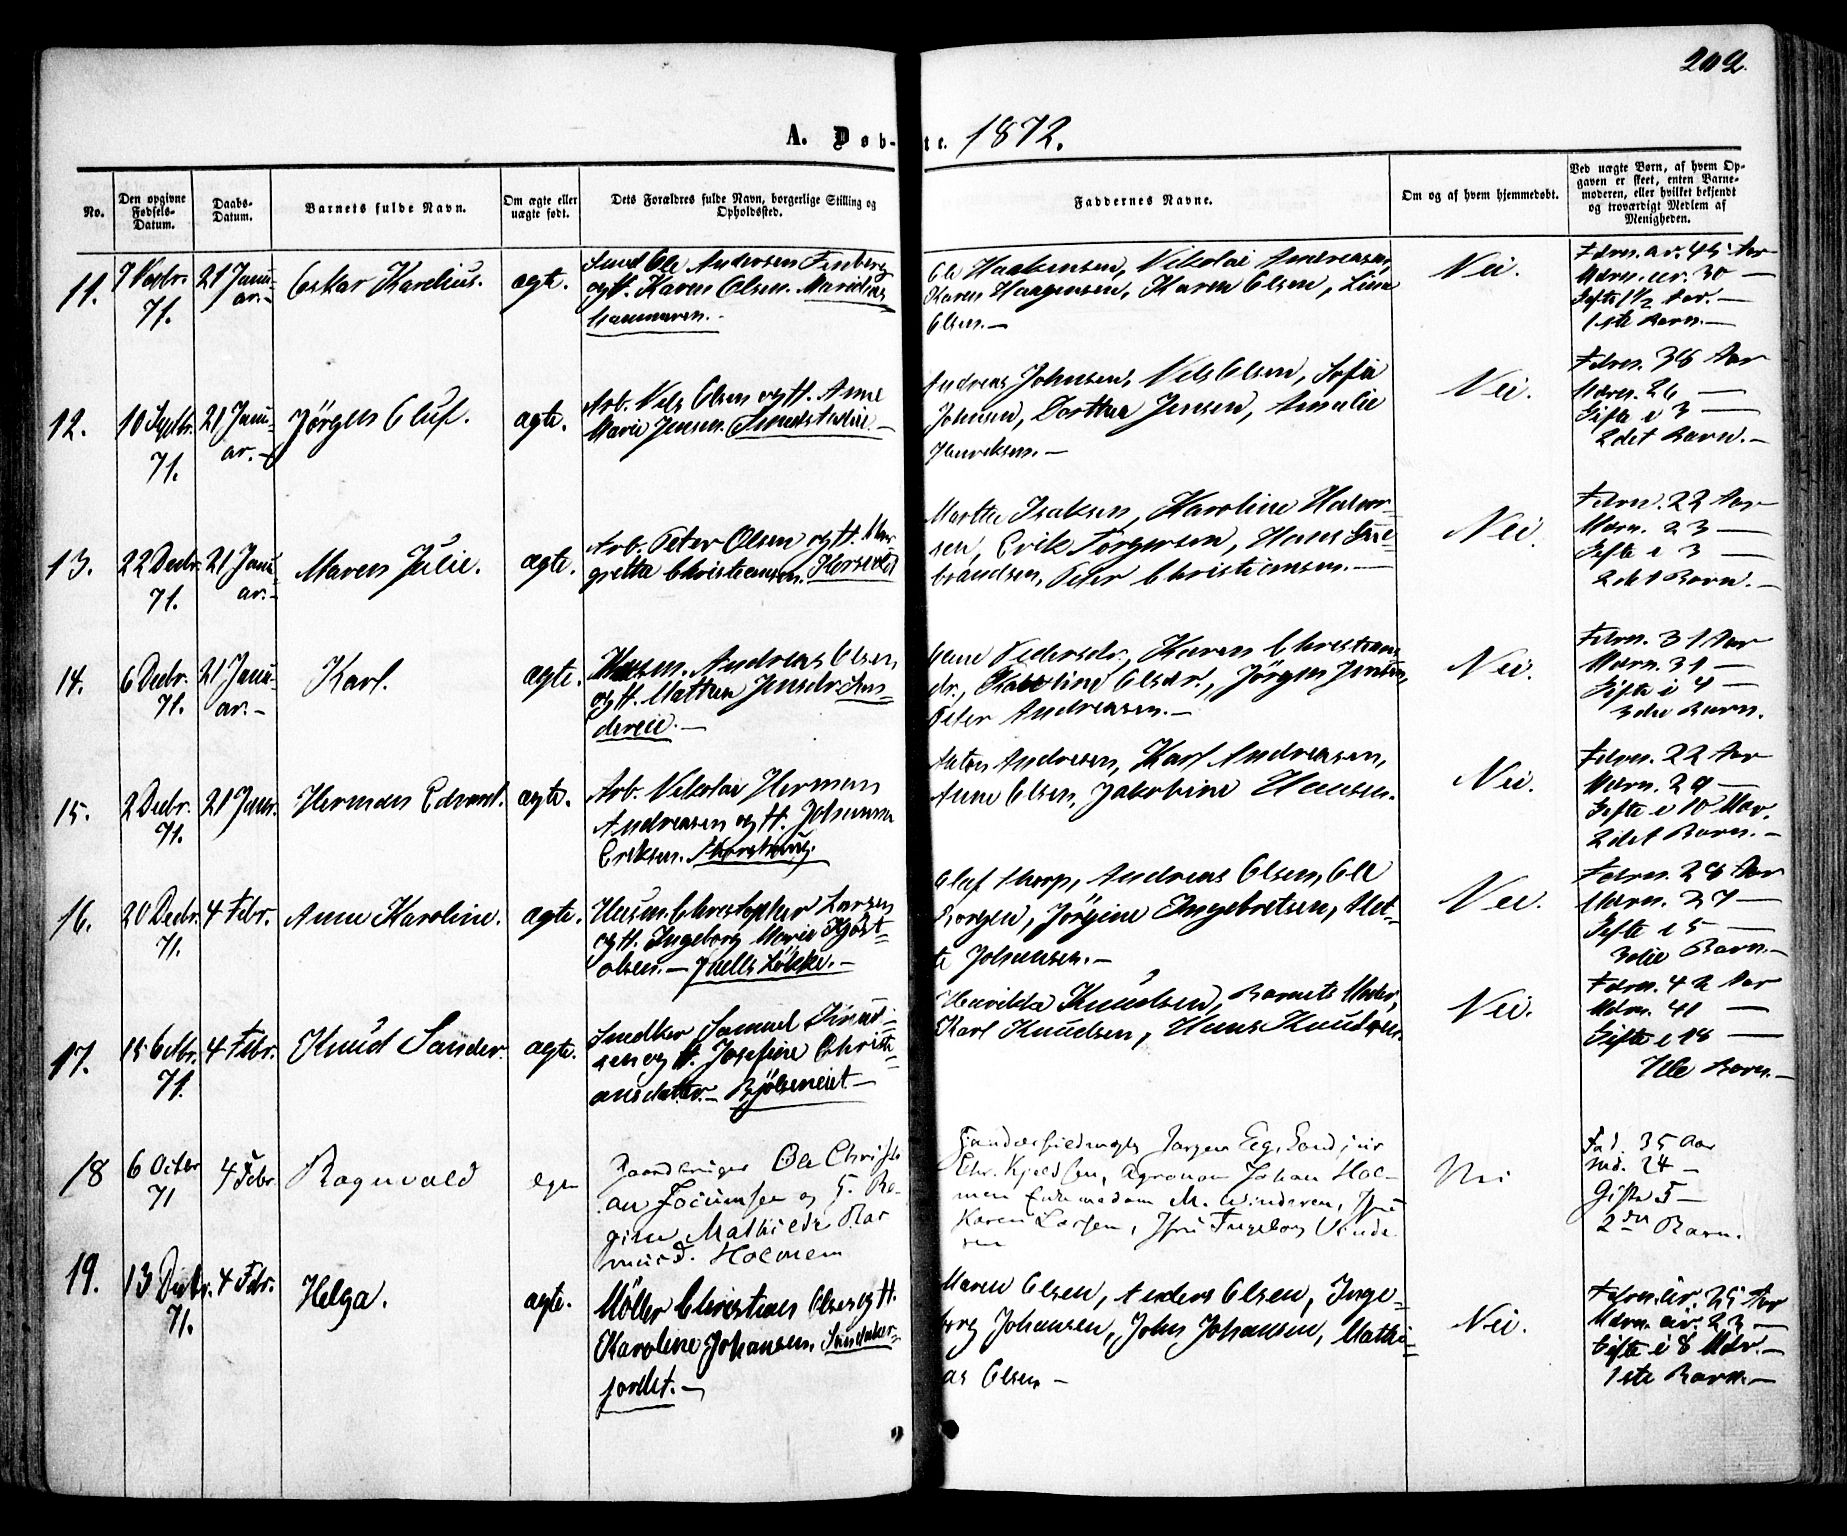 202.
A. Døb-te. 1872.
No.
Den opgivne Fødsels-Datum.
Daabs-Datum.
Barnets fulde Navn.
Om ægte eller uægte født.
Dets Forældres fulde Navn, borgerlige Stilling og Opholdssted.
Faddernes Navne.
Om og af hvem hjemmedøbt.
Ved uægte Børn, af hvem Op-
gaven er skeet, enten Barne-
moderen, eller hvilket bekjendt
og troværdigt Medlem af
Menigheden.
11.
7 Novbr.
71.
21 Janu-
ar.-
Oskar Karelius.
ægte.
Smed Ole Andersen
og H. Karen Olsen.
Ole Haakensen, Nikolai Andreasen,
Karen Haagensen, Karen Olsen, Lina
Olsen.—
Nei.
Fdrn. ar. 45 Aar
Mdrn. ar. 30 —
Gifte 1 1/2 Aar. —
1ste Barn.—
12.
10 Septbr.
71.
21 Janu-
ar.-
Jörgen Oluf.
ægte.
Arb. Nels Olsen og H. Anne
Marie Jensen.
Andreas Johnsen, Nels Olsen, Sofie
Johnsen, Dorthea Jensen, Amalie
Henriksen.—
Nei.
Fdrn. 36 Aar
Mdrn. 26 —
Gifte i 3 —
2det Barn.—
13.
22 Decbr.
71.
21 Janu-
ar.-
Maren Julie.
ægte.
Arb. Peter Olsen og H. Mar-
grethe Christiansen.
Marthe Isaksen, Karoline Halvor-
sen, Erik Torgersen, Hans
brandsen, Peter Christiansen.—
Nei.
Fdrn. 22 Aar
Mdrn. 23 —
Gifte i 3 —
2det Barn.—
14.
6 Decbr.
71.
21 Janu-
ar.-
Karl.
ægte.
Husm. Andreas Olsen
og H. Mathea Jensdr. San-
dereie.—
Pedersdr., Karen Christians-
dr., Karoline Olsdr., Jörgen Jensen,
Peter Andreasen.—
Nei.
Fdrn. 31 Aar
Mdrn. 31 —
Gifte i 4 —
3die Barn.
15.
2 Decbr.
71.
21 Janr.
Herman Edvard.
ægte.
Arb. Nikolai Herman
Andreasen og H. Johanna
Eriksen.
Anton Andresen, Karl Andreasen,
Anne Olsen, Jakobine Hansen.
Nei.
Fdrn. 22 Aar
Mdrn. 29 —
Gifte i 10 Mdr.
2det Barn.—
16.
20 Decbr.
71.
4 Febr.
Anne Karoline.
ægte.
Husm. Christopher Larsen
og H. Ingeborg Marie Kjöst-
olsen.— Juells Lökke.—
Olaf Thorp, Andreas Olsen, Ole
Borgen, Jörgine Ingebretsen, Met-
te Johansen.—
Nei.
Fdrn. 28 Aar
Mdrn. 27 —
Gifte i 5 —
3die Barn.—
17.
15 Octbr.
71.
4 Febr.
Knud Sander.
ægte.
Snedker Samuel Knud-
sen og H. Josefine Christi-
ansdatter.— Bjölseneiet.—
Knudsen, Barnets Moder,
Karl Knudsen, Hans Knudsen.
Nei.
Fdrn. 42 Aar
Mdrn. 41 —
Gifte i 18 —
Barn.—
18
6 Octbr
71
4 Febr
Ragnvald
egte
Gaardbruger Ole Christi-
an Jocumsen og H. Re-
gine Mathilde Ras
musd. Holmen
Jørgen Eeg, Sand,
Chr. Kjeldsen, Agronom Johan Hol-
men, M. Winderen, Fru
Karen Larsen, Ingeborg Winde
ren
Nei
Fad. 35 Aar
Md. 24 —
Gifte 5 —
2det Barn.
19.
13 Decbr.
71.
4 Febr.
Helga.
ægte.
Möller Christian Olsen og H.
Karoline Johansen, Sandaker-
jordet.—
Maren Olsen, Anders Olsen, Inge-
borg Johansen, John Johansen, Mathi-
as Olsen —
Nei.
Fdrn. ar. 25 Aar
Mdrn. ar. 23 —
Gifte i 8 Mdr.—
1ste Barn.—